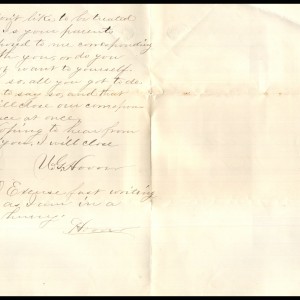 don't like, to be treated
is your parents
opposed to me corresponding
with you, or do you
want to yourself.
so, all you got to do
to say so, and that
will close our correspon
ce at once.
Hoping to hear from
you, I will close
Excuse fast writing
as I am in a
hurry.